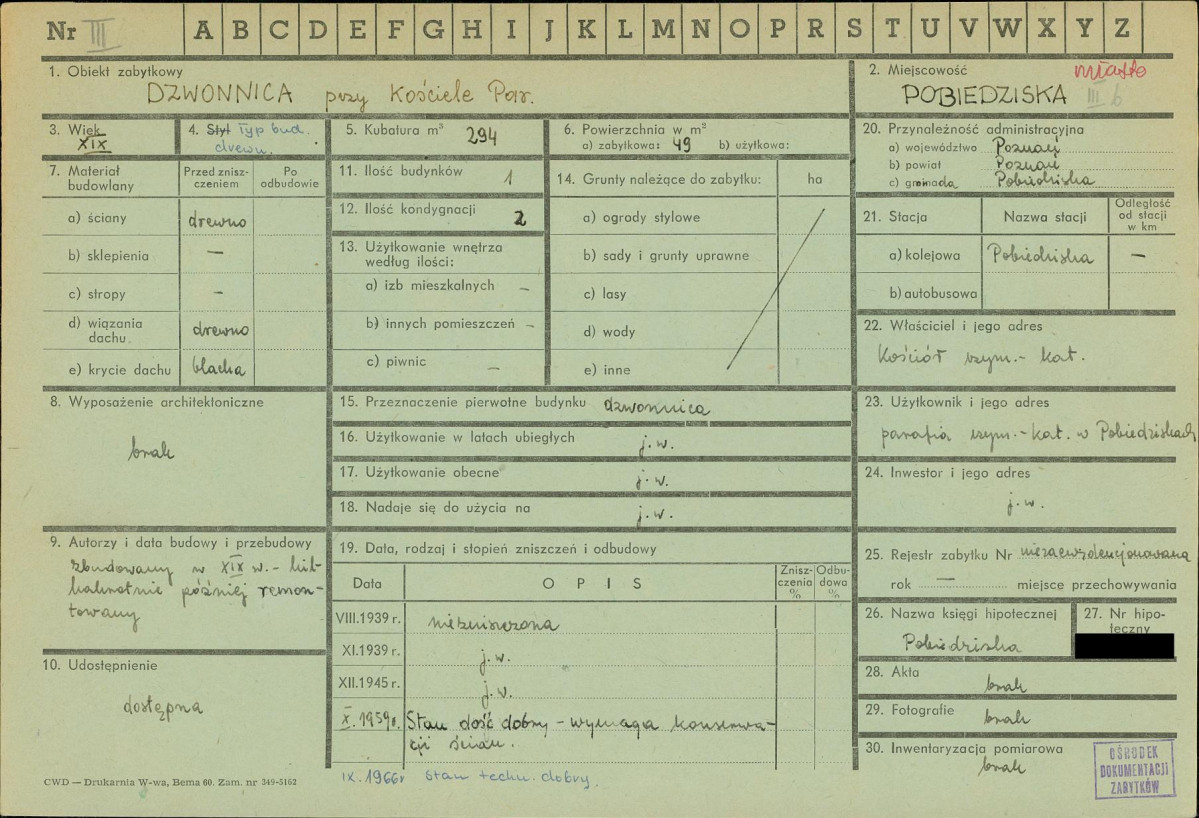 Nr III A B C D E F G H I J K L M N O P R S T U V W X Y Z
1. Obiekt zabytkowy
DZWONNICA przy Kościele Par.
2. Miejscowość miasto
POBIEDZISKA III b
3. Wiek
XIX
4. Styl Typ bud.
drewn.
5. Kubatura m³ 294
6. Powierzchnia w m²
a) zabytkowa: 49 b) użytkowa:
7. Materiał budowlany
Przed zniszczeniem
Po odbudowie
a) ściany drewno
b) sklepienia —
c) stropy -
d) wiązania dachu drewno
e) krycie dachu blacha
8. Wyposażenie architektoniczne
brak
9. Autorzy i data budowy i przebudowy
zbudowany w XIX w. - kil-
kakrotnie później remon-
towany
10. Udostępnienie
dostępna
11. Ilość budynków 1
12. Ilość kondygnacji 2
13. Użytkowanie wnętrza
według ilości:
a) izb mieszkalnych -
b) innych pomieszczeń -
c) piwnic —
14. Grunty należące do zabytku: ha
a) ogrody stylowe
b) sady i grunty uprawne
c) lasy
d) wody
e) inne
15. Przeznaczenie pierwotne budynku dzwonnica
16. Użytkowanie w latach ubiegłych j.w.
17. Użytkowanie obecne j.w.
18. Nadaje się do użycia na j.w.
19. Data, rodzaj i stopień zniszczeń i odbudowy
Data OPIS Zniszczenia % Odbudowa %
VIII.1939 r. niezniszczona
XI.1939 r. j.w.
XII.1945 r. j.w.
X.1959r. Stan dość dobry - wymaga konserwa-
cji ścian.
IX.1966r Stan techn. dobry.
20. Przynależność administracyjna
a) województwo Poznań
b) powiat Poznań
c) gromada Pobiedziska
21. Stacja Nazwa stacji Odległość od stacji w km
a) kolejowa Pobiedziska —
b) autobusowa
22. Właściciel i jego adres
Kościół rzym.-kat.
23. Użytkownik i jego adres
parafia rzym.-kat. w Pobiedziskach
24. Inwestor i jego adres
j.w.
25. Rejestr zabytku Nr niezaewidencjonowana
rok — miejsce przechowywania
26. Nazwa księgi hipotecznej
Pobiedziska
27. Nr hipoteczny
28. Akta
brak
29. Fotografie brak
30. Inwentaryzacja pomiarowa
brak
OŚRODEK
DOKUMENTACJI
ZABYTKÓW
CWD — Drukarnia W-wa, Bema 60. Zam. nr 349-5162